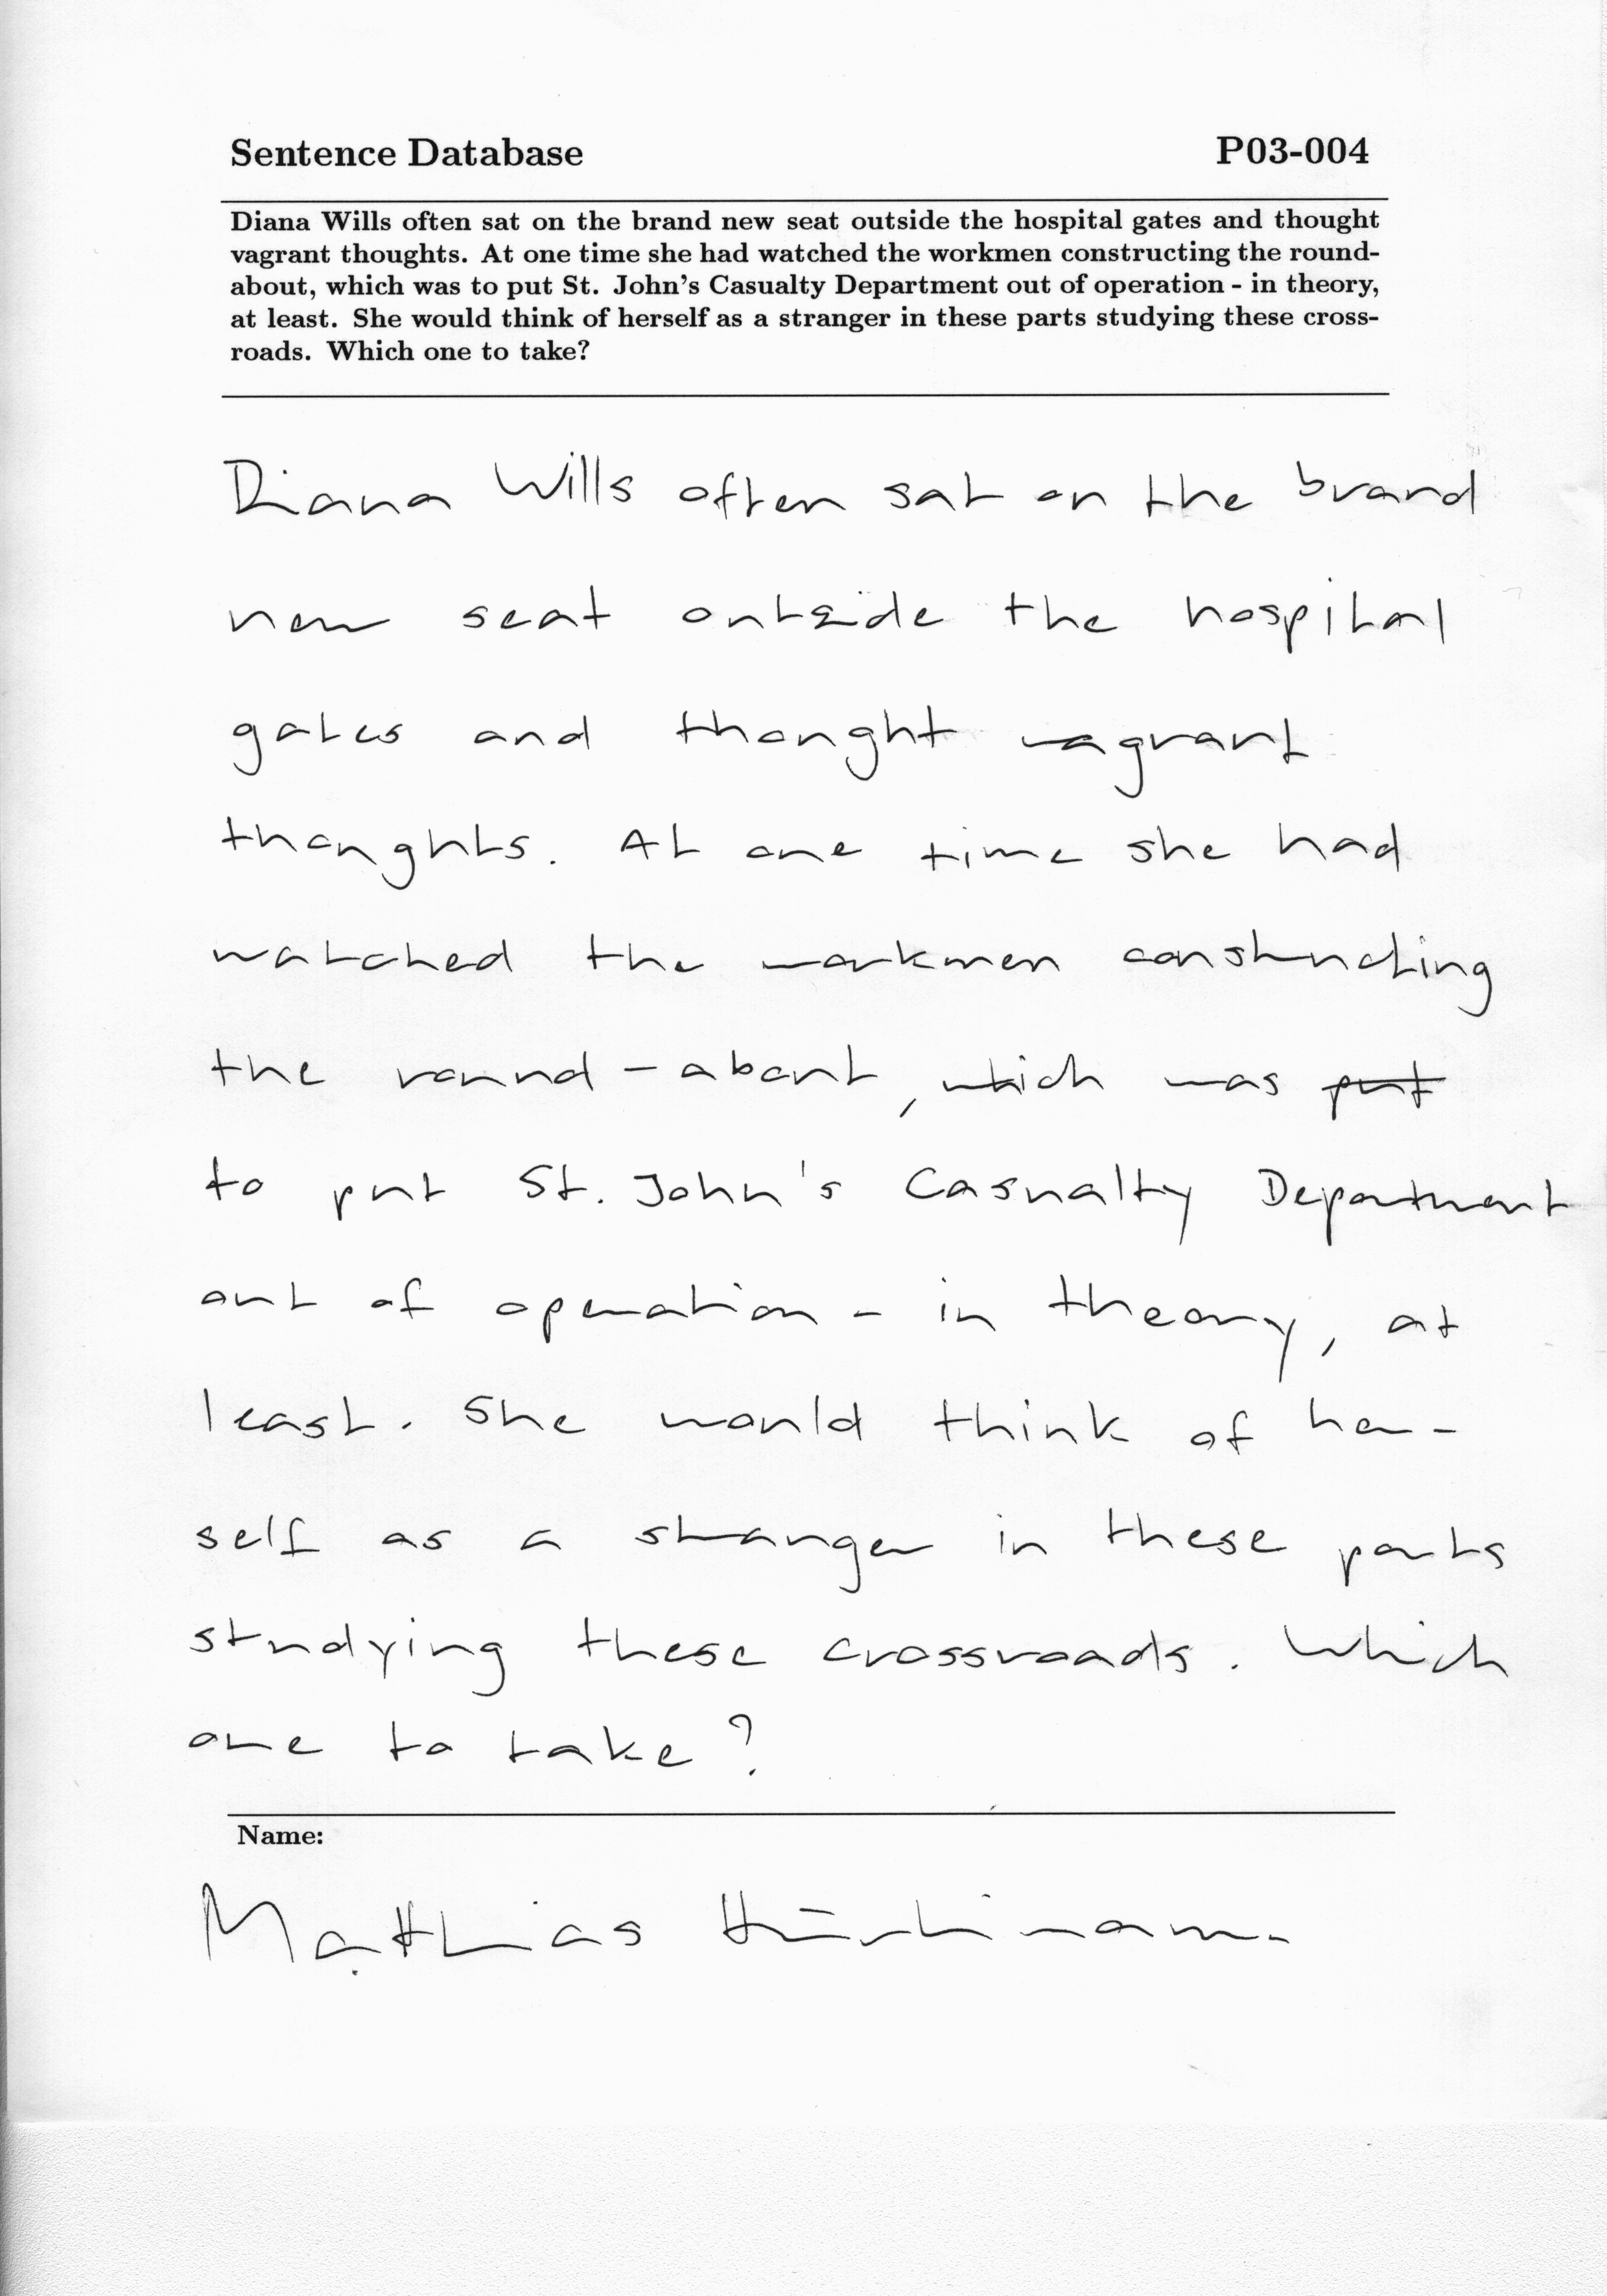 Sentence Database P03-004
Diana Wills often sat on the brand new seat outside the hospital gates and thought
vagrant thoughts. At one time she had watched the workmen constructing the round-
about, which was to put St. John's Casualty Department out of operation - in theory,
at least. She would think of herself as a stranger in these parts studying these cross-
roads. Which one to take?
Diana Wills often sat on the brand
new seat outside the hospital
gates and thought vagrant
thoughts. At one time she had
watched the workmen constructing
the round-about, which was put
to put St. John's Casualty Department
out of operation - in theory, at
least. She would think of her-
self as a stranger in these parts
studying these crossroads. Which
one to take?
Name:
Matthias